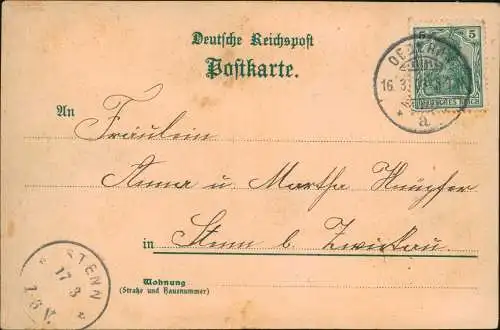 Deutsche Reichspost
Postkarte.
5 5
16. 3.
a
An
Fräulein
Anna u. Martha Knüpfer
in Stenn b. Zwickau.
STENN
17 3
7-8 V.
Wohnung
(Straße und Hausnummer)